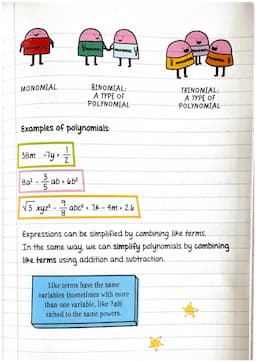 MONOMIAL
BINOMIAL:
A TYPE OF
POLYNOMIAL
TRINOMIAL:
A TYPE OF
POLYNOMIAL
Examples of polynomials:
38m - 7y + 1/2
8a² - 3/5 ab + 6b²
√3 xyz³ - 9/8 abc² + 7k - 4m + 26
Expressions can be simplified by combining like terms.
In the same way, we can simplify polynomials by combining
like terms using addition and subtraction.
Like terms have the same
variables (sometimes with more
than one variable, like 7ab)
raised to the same powers.